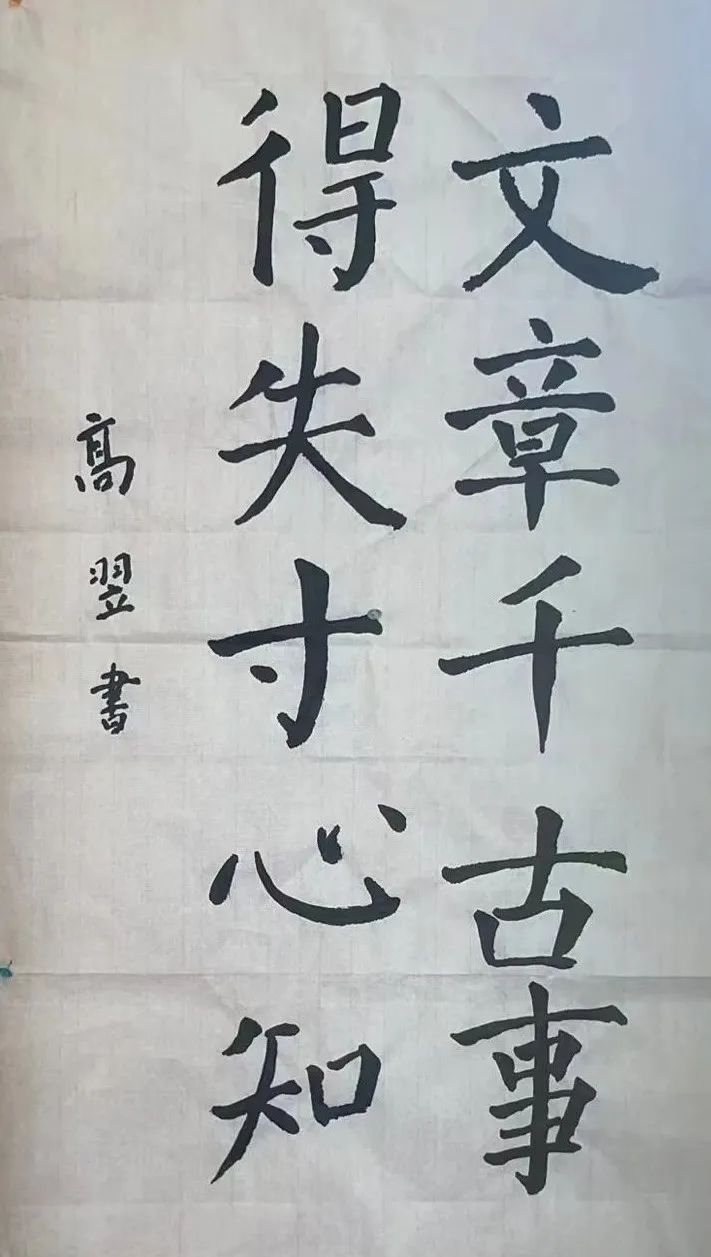 文章千古事
得失寸心知
高翌書